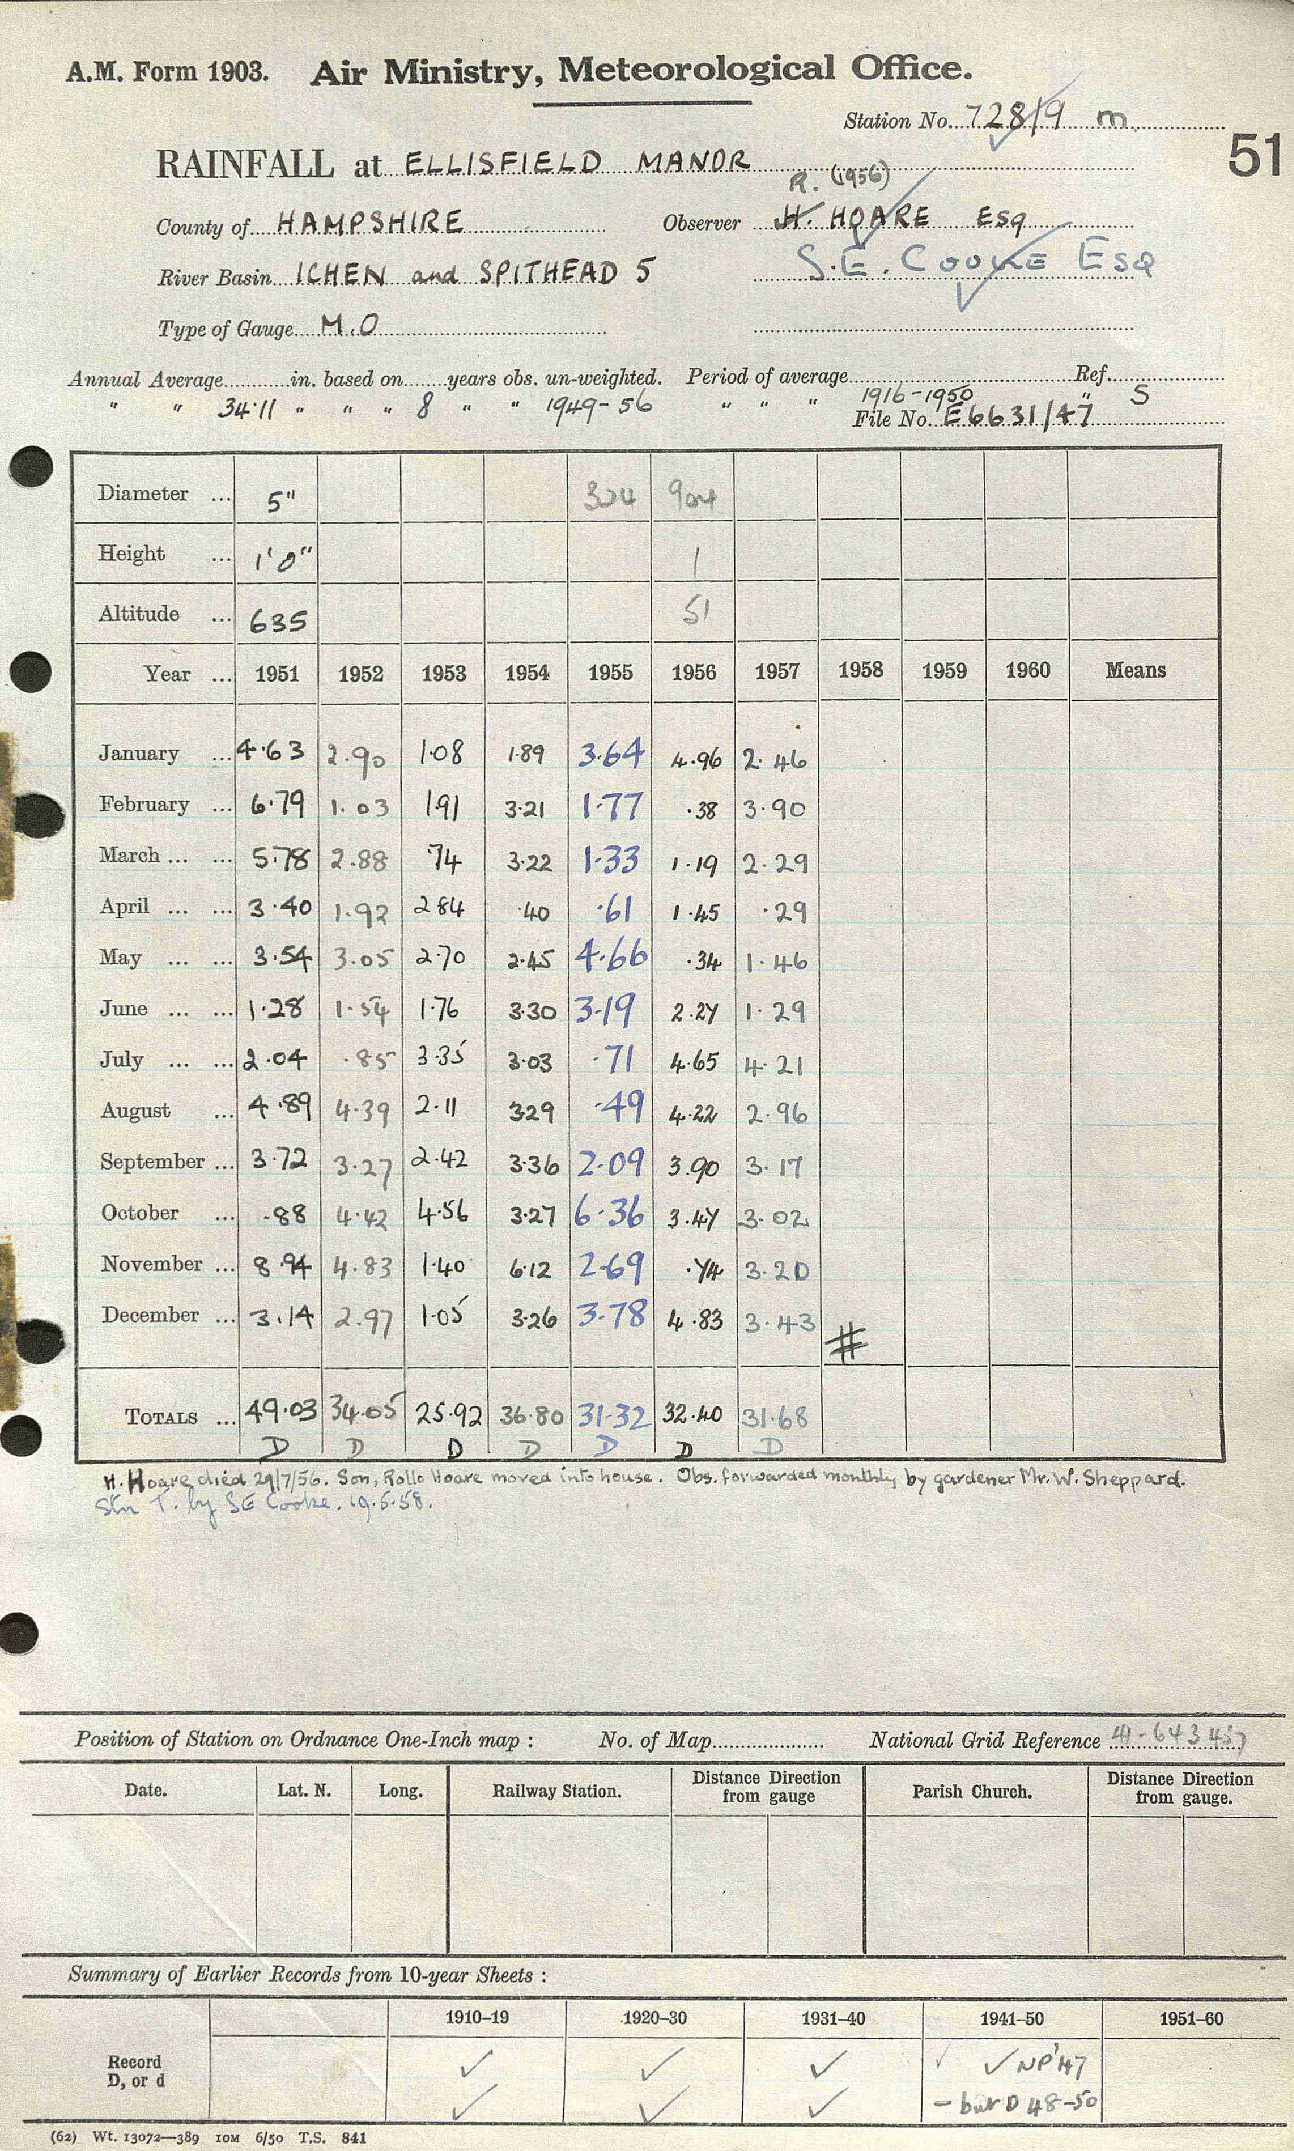 A.M. Form 1903. Air Ministry, Meteorological Office.
Station No. 728/9 m
51
RAINFALL at ELLISFIELD MANOR
R. (1956)
County of HAMPSHIRE Observer H. HOARE ESQ
River Basin ICHEN and SPITHEAD 5 S.E. COOKE ESQ
Type of Gauge M.O
Annual Average in. based on years obs. un-weighted. Period of average Ref.
" " 34.11 " " " 8 " " 1949-56 " " " 1916-1950 " S
File No. E6631/47
Diameter ... 5" 324 904
Height ... 1'0" 1
Altitude ... 635 51
Year ... 1951 1952 1953 1954 1955 1956 1957 1958 1959 1960 Means
January ... 4.63 2.90 1.08 1.89 3.64 4.96 2.46
February ... 6.79 1.03 1.91 3.21 1.77 .38 3.90
March ... ... 5.78 2.88 .74 3.22 1.33 1.19 2.29
April ... ... 3.40 1.92 2.84 .40 .61 1.45 .29
May ... ... 3.54 3.05 2.70 2.45 4.66 .34 1.46
June ... ... 1.28 1.54 1.76 3.30 3.19 2.27 1.29
July ... ... 2.04 .85 3.35 3.03 .71 4.65 4.21
August ... 4.89 4.39 2.11 3.29 .49 4.22 2.96
September ... 3.72 3.27 2.42 3.36 2.09 3.90 3.17
October ... .88 4.42 4.56 3.27 6.36 3.47 3.02
November ... 8.94 4.83 1.40 6.12 2.69 .74 3.20
December ... 3.14 2.97 1.05 3.26 3.78 4.83 3.43 #
TOTALS ... 49.03 34.05 25.92 36.80 31.32 32.40 31.68
D D D D D D D
H. Hoare died 29/7/56. Son, Rollo Hoare moved into house. Obs. forwarded monthly by gardener Mr. W. Sheppard.
Stn T. by SE Cooke. 19.5.58.
Position of Station on Ordnance One-Inch map : No. of Map National Grid Reference 41-643457
Date. Lat. N. Long. Railway Station. Distance Direction from gauge Parish Church. Distance Direction from gauge.
Summary of Earlier Records from 10-year Sheets :
1910–19 1920–30 1931–40 1941–50 1951–60
Record ✓ ✓ ✓ ✓ ✓ NP'47
D, or d ✓ ✓ ✓ - but D 48-50
(62) Wt. 13072—389 10M 6/50 T.S. 841